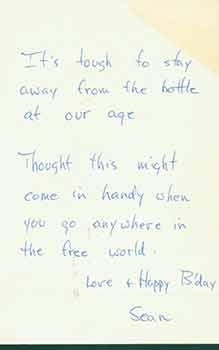 It's tough to stay
away from the bottle
at our age
Thought this might
come in handy when
you go anywhere in
the free world.
Love + Happy B'day
Sean